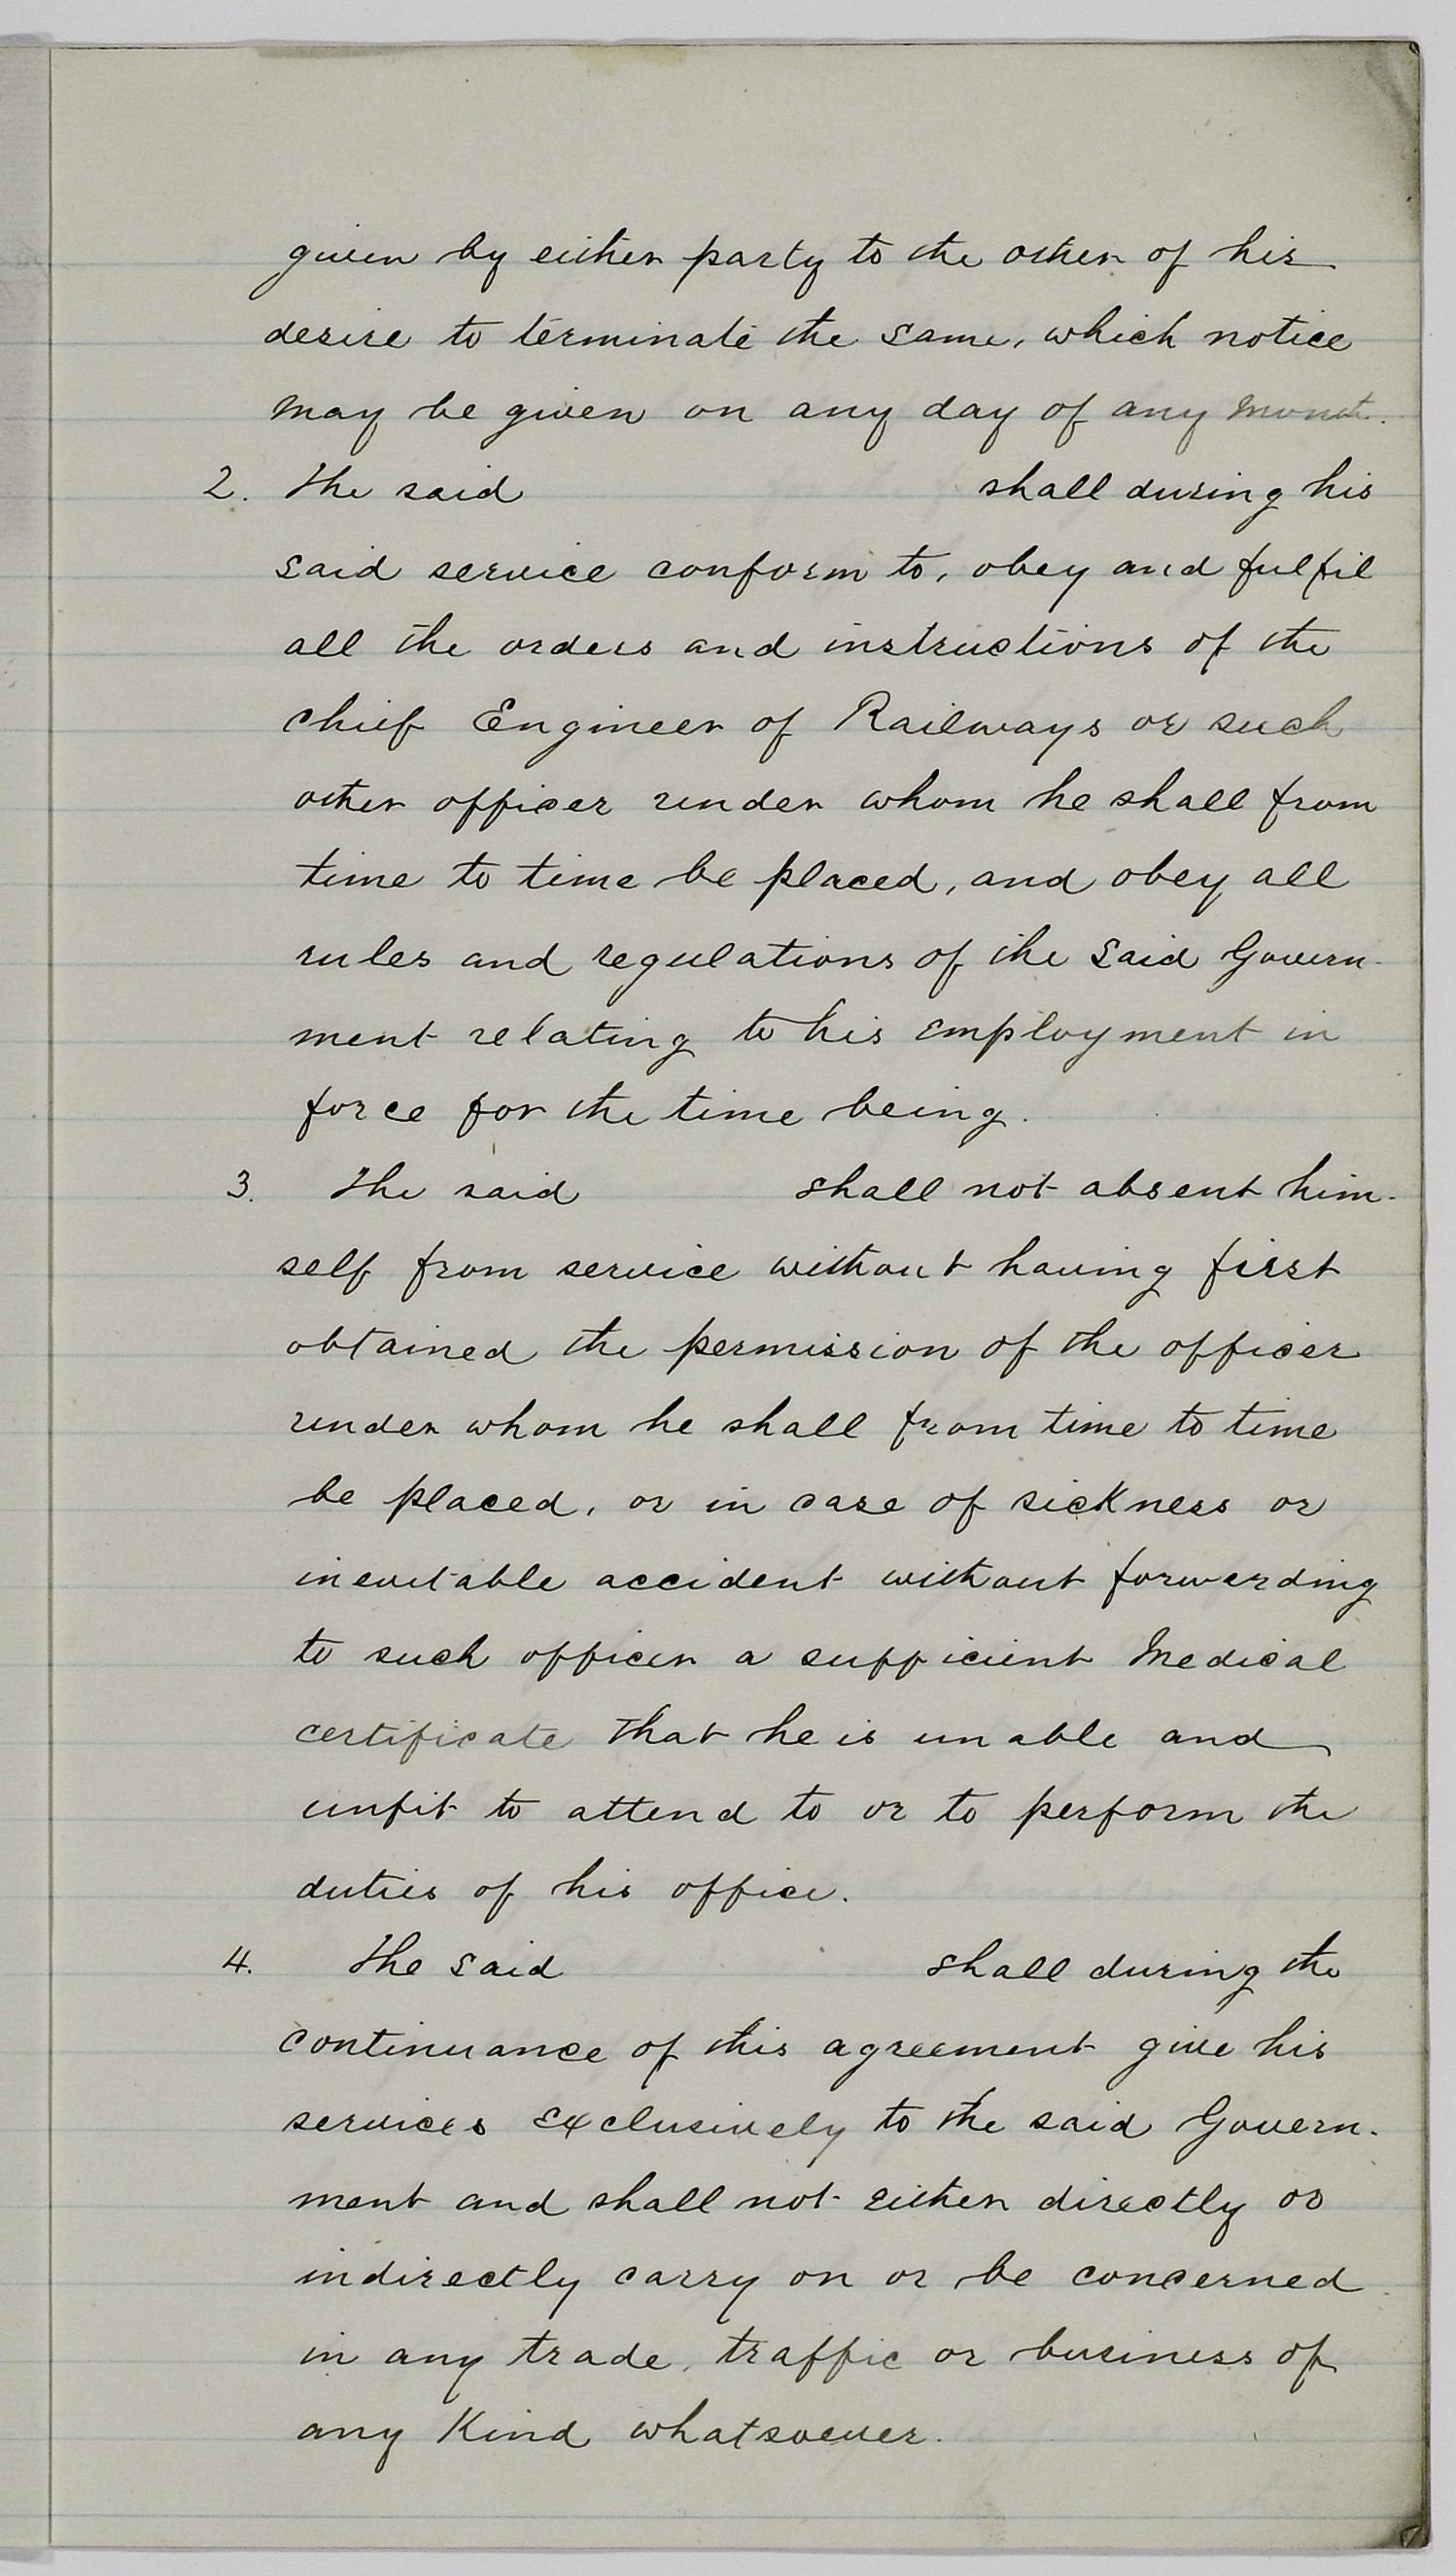 given by either party to the other of his
desire to terminate the same, which notice
may be given on any day of any month.
2. The said shall during his
said service conform to, obey and fulfil
all the orders and instructions of the
chief Engineer of Railways or such
other officer under whom he shall from
time to time be placed, and obey all
rules and regulations of the said Govern-
ment relating to his employment in
force for the time being.
3. The said shall not absent him-
self from service without having first
obtained the permission of the officer
under whom he shall from time to time
be placed, or in case of sickness or
inevitable accident without forwarding
to such officer a sufficient Medical
certificate that he is unable and
unfit to attend to or to perform the
duties of his office.
4. The said shall during the
continuance of this agreement give his
services exclusively to the said Govern-
ment and shall not either directly or
indirectly carry on or be concerned
in any trade, traffic or business of
any Kind whatsoever.